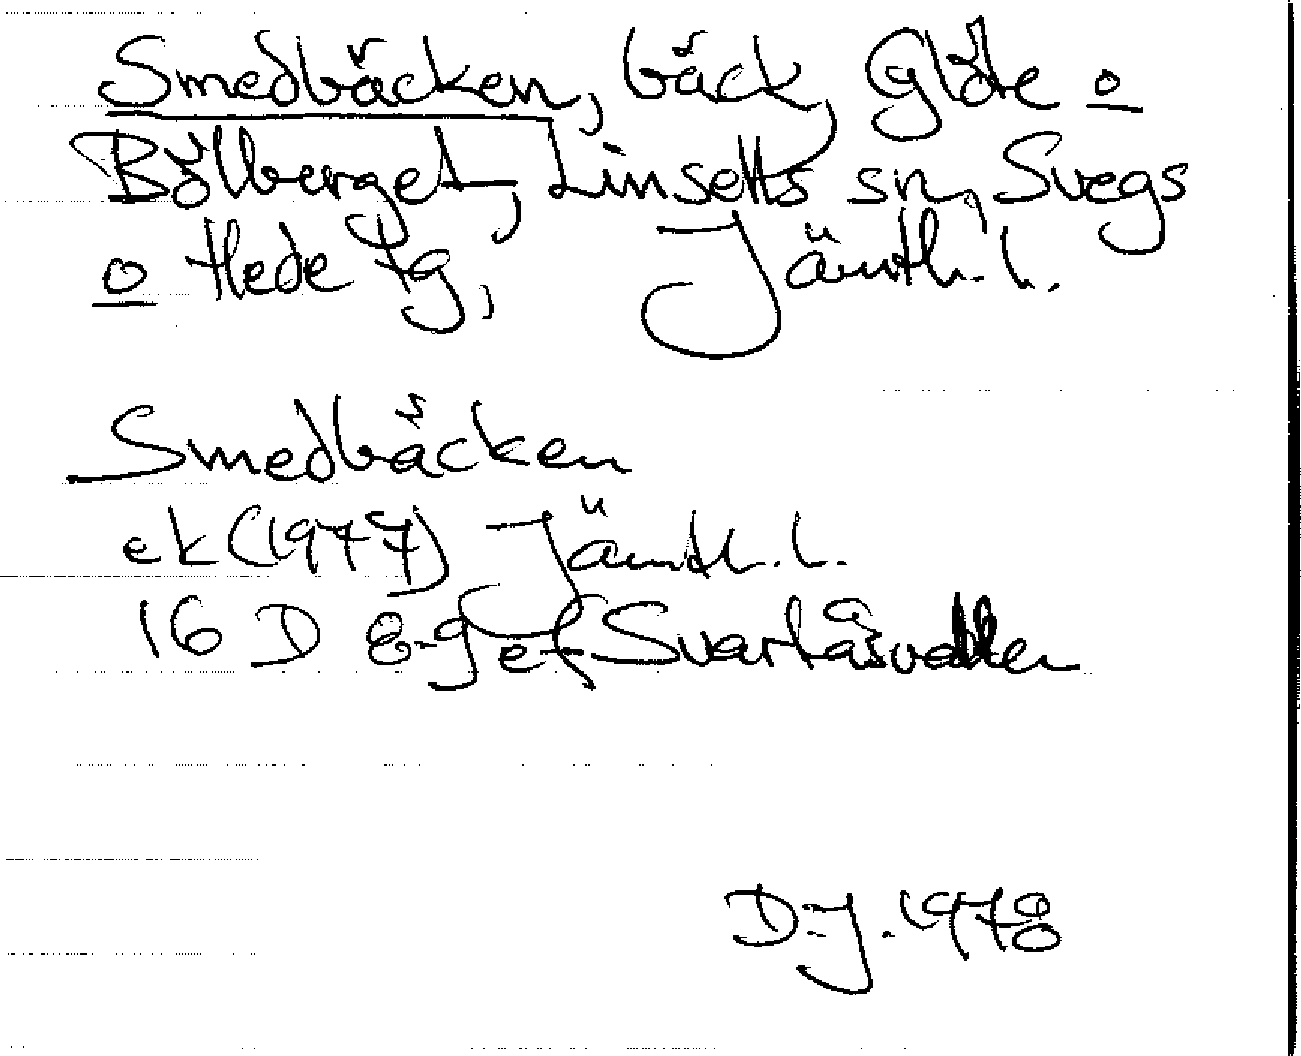 Smedbäcken, bäck, Glöte o
Bölberget, Linsells sn, Svegs
o Hede tg, Jämtl. l.
Smedbäcken
ek (1977) Jämtl. l.
16 D 8-9 e-f Svartåsvallen
D-J. 1978